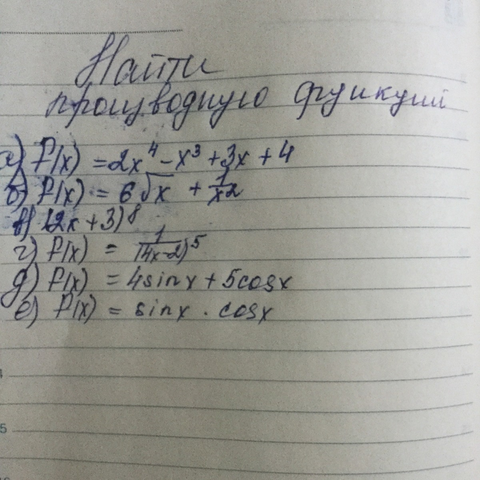 Найти
производную функций
а) f(x) = 2x⁴ - x³ + 3x + 4
б) f(x) = 6√x + 1/x2
в) (2x + 3)⁸
г) f(x) = 1/(4x-2)⁵
д) f(x) = 4sinx + 5cosx
е) f(x) = sinx · cosx
5